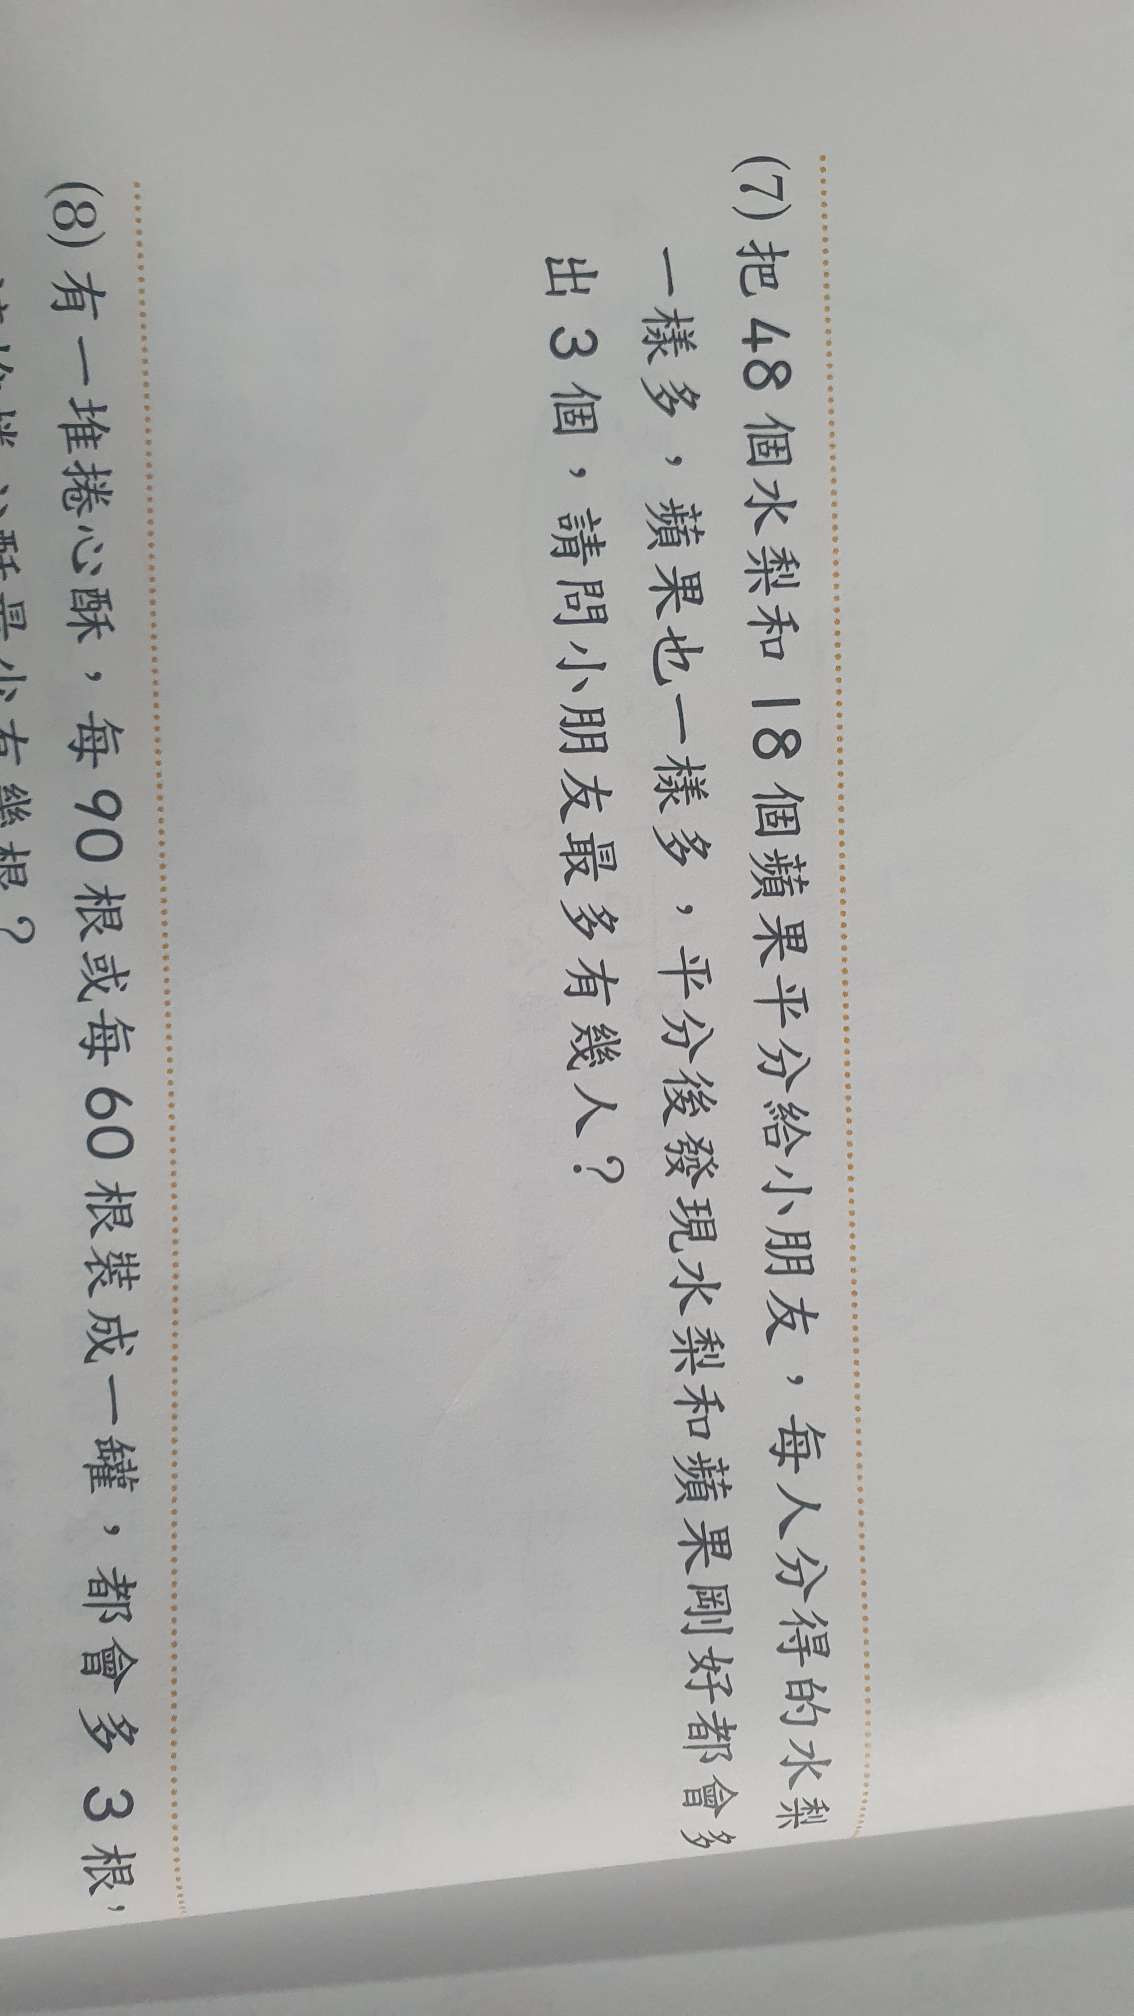 (7) 把 48 個水梨和 18 個蘋果平分給小朋友，每人分得的水梨
一樣多，蘋果也一樣多，平分後發現水梨和蘋果剛好都會多
出 3 個，請問小朋友最多有幾人？
(8) 有一堆捲心酥，每 90 根或每 60 根裝成一罐，都會多 3 根，
心酥最少有幾根？